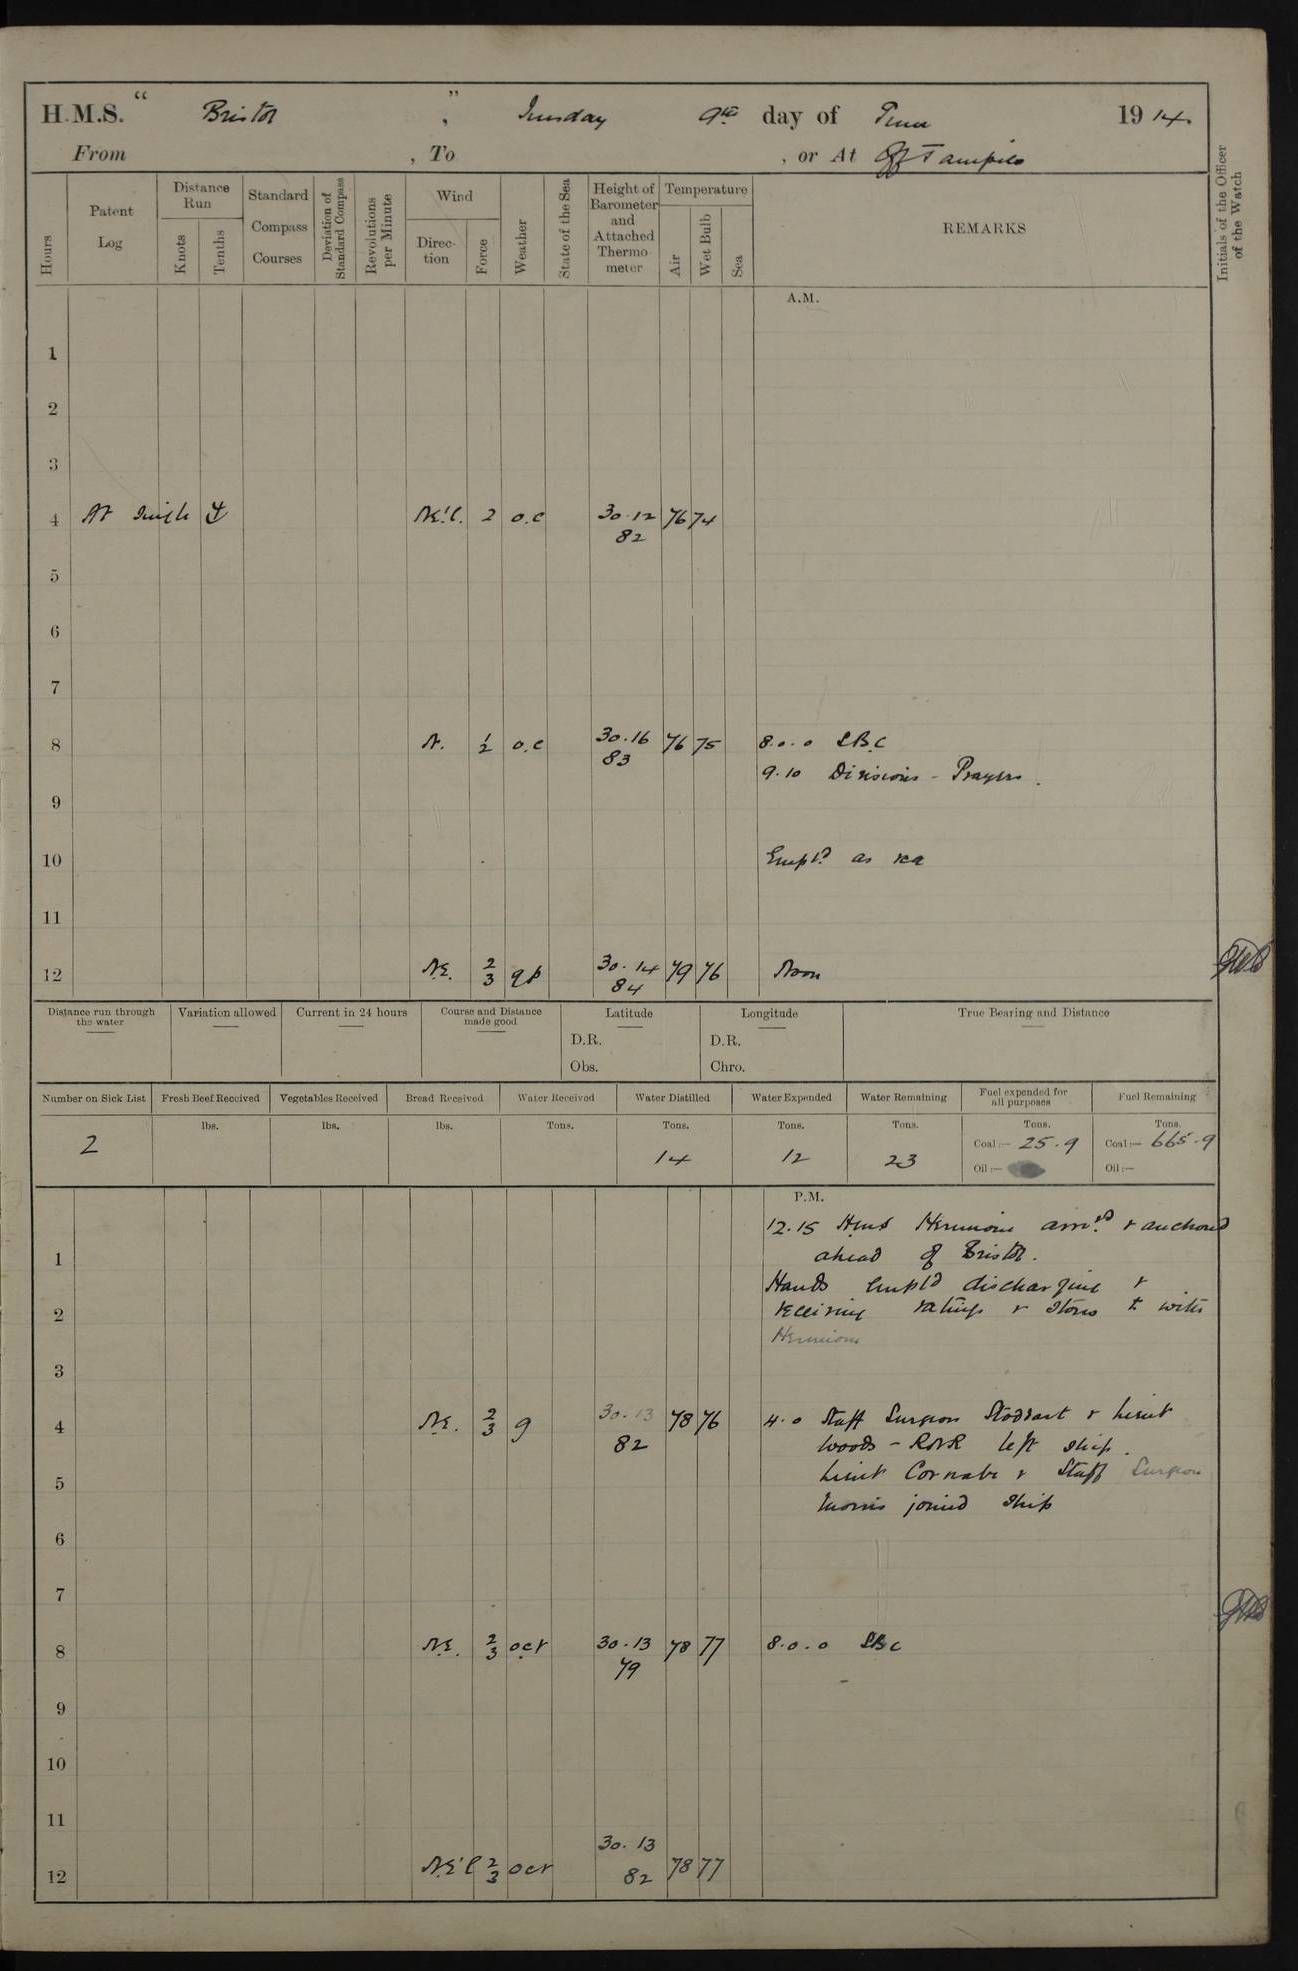 H.M.S. “ Bristol ”, Tuesday 9th day of June 1914.
From , To , or At Off Tampico
Hours
Patent Log
Distance Run
Knots
Tenths
Standard Compass Courses
Deviation of Standard Compass
Revolutions per Minute
Wind
Direction
Force
Weather
State of the Sea
Height of Barometer and Attached Thermometer
Temperature
Air
Wet Bulb
Sea
REMARKS
Initials of the Officer of the Watch
A.M.
1
2
3
4 At single NE'l. 2 o.c 30.12 76 74
82
5
6
7
8 N. 1/2 o.c 30.16 76 75 8.0.0 SBC
83
9.10 Divisions - Prayers.
9
10 Empld as req
11
12 NE. 2/3 qp 30.14 79 76 Noon
84
Distance run through the water
Variation allowed
Current in 24 hours
Course and Distance made good
Latitude
D.R.
Obs.
Longitude
D.R.
Chro.
True Bearing and Distance
Number on Sick List
Fresh Beef Received
Vegetables Received
Bread Received
Water Received
Water Distilled
Water Expended
Water Remaining
Fuel expended for all purposes
Fuel Remaining
lbs. lbs. lbs. Tons. Tons. Tons. Tons. Tons. Tons.
2 14 12 23 Coal:— 25.9 Coal:— 665.9
Oil:— Oil:—
P.M.
12.15 HMS Hermione arrd & anchored
1 ahead of Bristol.
Hands empld discharging &
2 receiving ratings & stores to with
Hermione
3
4 NE. 2/3 g 30.13 78 76 4.0 Staff Surgeon Stoddart & Lieut
82 Woods - RNR left ship.
5 Lieut Cornabe & Staff Surgeon
Morris joined ship
6
7
8 NE. 2/3 ocr 30.13 78 77 8.0.0 SBC
79
9
10
11
30.13
12 NE'l 2/3 ocr 82 78 77